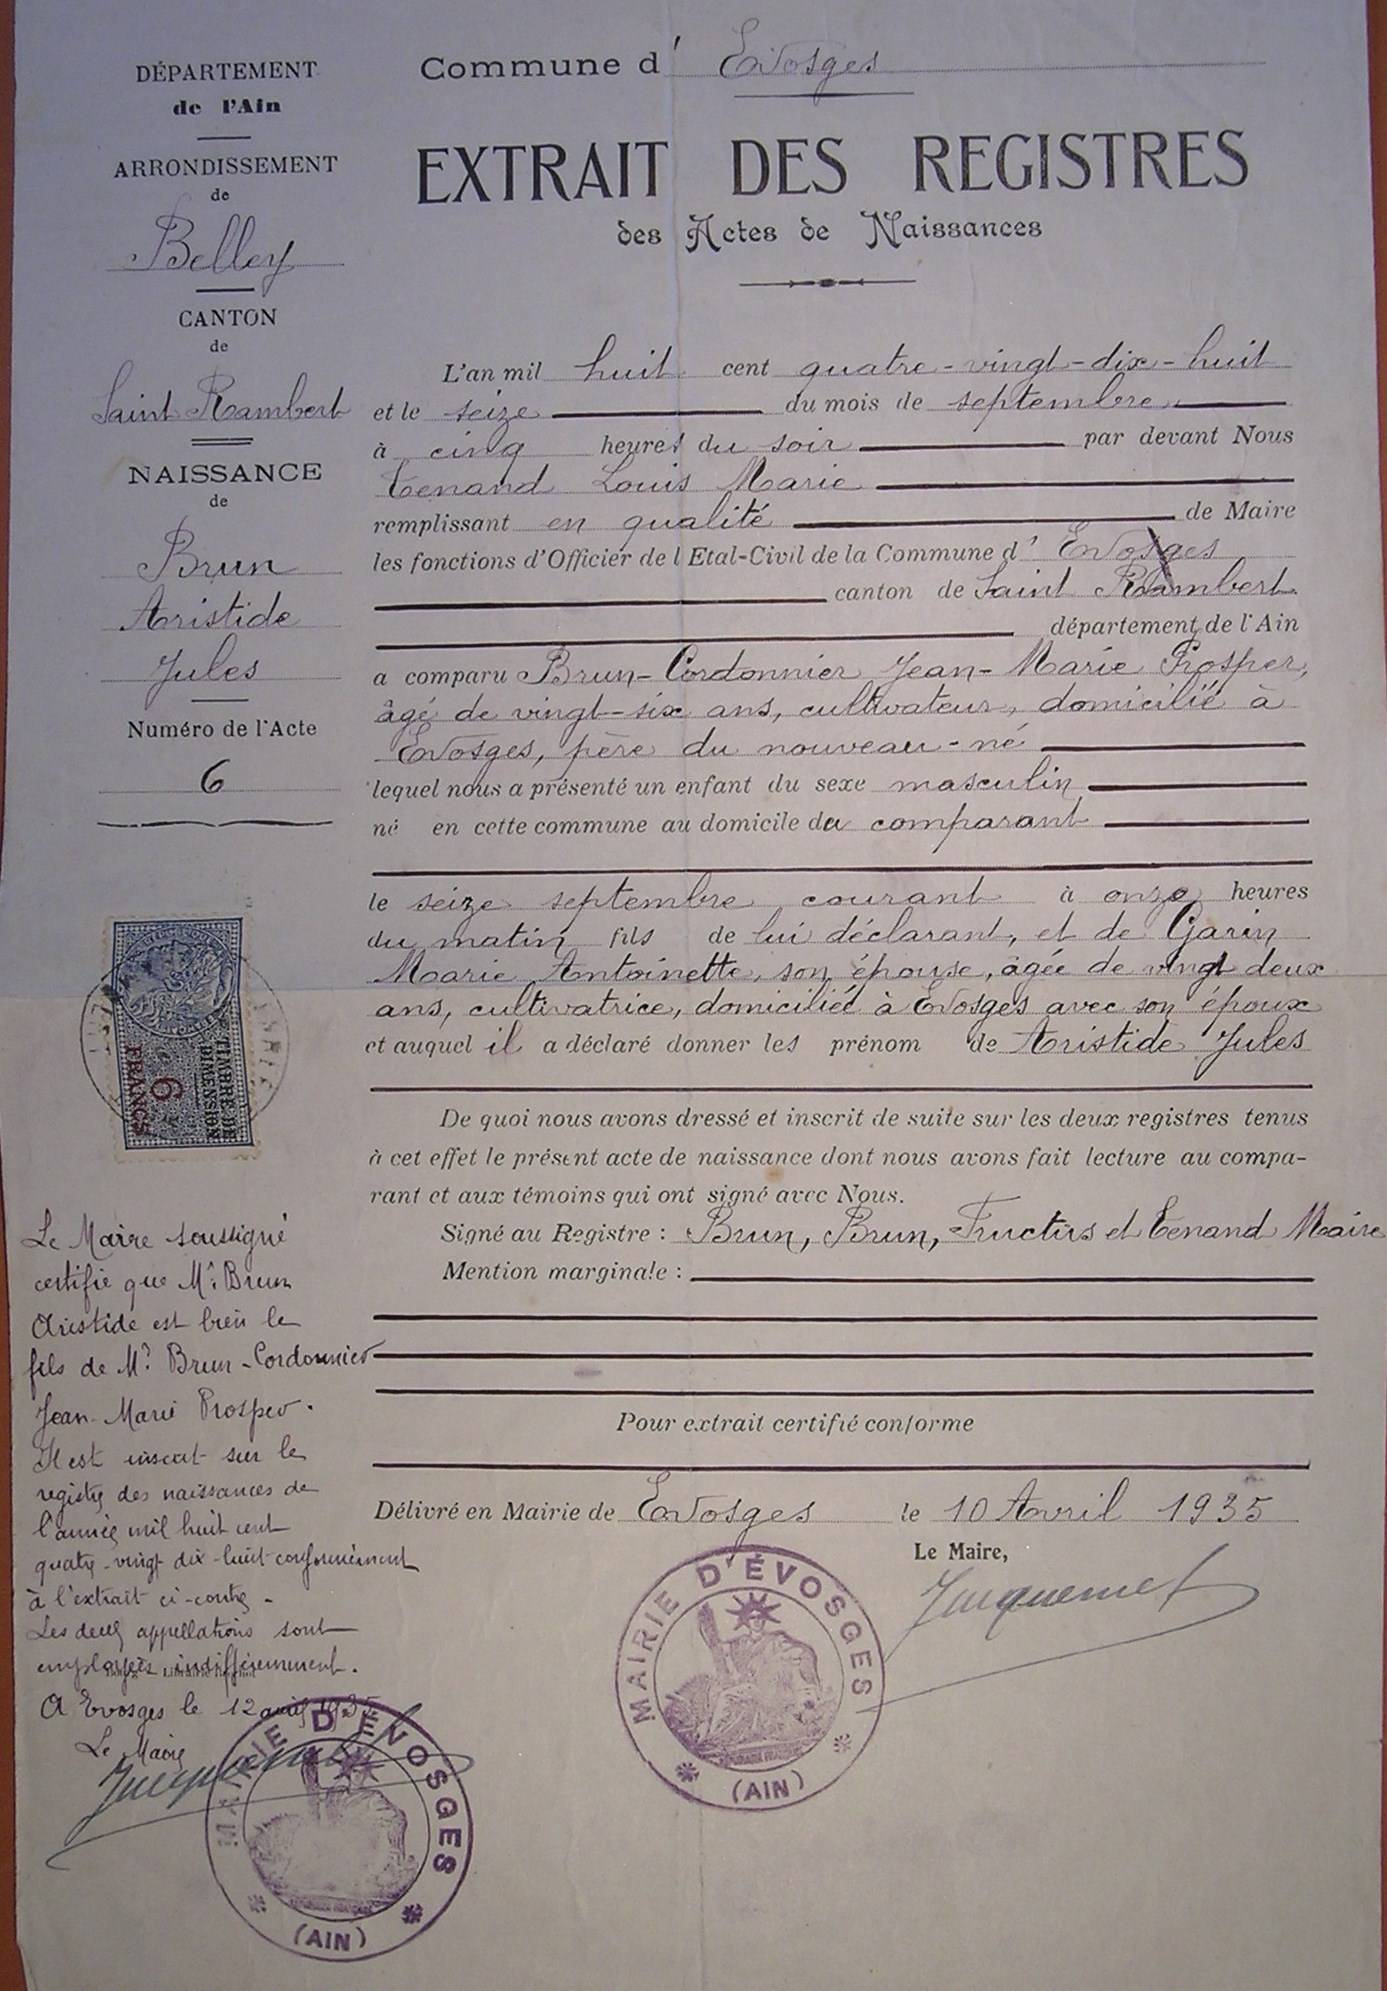 DÉPARTEMENT
de l'Ain
ARRONDISSEMENT
de
Belley
CANTON
de
Saint Rambert
NAISSANCE
de
Brun
Aristide
Jules
Numéro de l'Acte
6
Commune d' Evosges
EXTRAIT DES REGISTRES
des Actes de Naissances
L'an mil huit cent quatre-vingt-dix-huit
et le seize du mois de septembre
à cinq heures du soir par devant Nous
Tenand Louis Marie
remplissant en qualité de Maire
les fonctions d'Officier de l'Etat-Civil de la Commune d' Evosges
canton de Saint Rambert
département de l'Ain
a comparu Brun-Cordonnier Jean-Marie Prosper,
âgé de vingt-six ans, cultivateur, domicilié à
Evosges, père du nouveau-né
lequel nous a présenté un enfant du sexe masculin
né en cette commune au domicile du comparant
le seize septembre courant à onze heures
du matin fils de lui déclarant, et de Garin
Marie Antoinette, son épouse, âgée de vingt deux
ans, cultivatrice, domiciliée à Evosges avec son époux
et auquel il a déclaré donner les prénom de Aristide Jules
De quoi nous avons dressé et inscrit de suite sur les deux registres tenus
à cet effet le présent acte de naissance dont nous avons fait lecture au compa-
rant et aux témoins qui ont signé avec Nous.
Signé au Registre : Brun, Brun, Fructus et Tenand Maire
Mention marginale :
Pour extrait certifié conforme
Délivré en Mairie de Evosges le 10 Avril 1935
Le Maire,
Jacquemet
MAIRIE D'ÉVOSGES
(AIN)
TIMBRE DE
DIMENSION
6
FRANCS
Le Maire soussigné
certifie que Mr Brun
Aristide est bien le
fils de Mr Brun-Cordonnier
Jean-Marie Prosper.
Il est inscrit sur le
registre des naissances de
l'année mil huit cent
quatre-vingt dix-huit conformément
à l'extrait ci-contre.
Les deux appellations sont
employées indifféremment.
A Evosges le 12 avril 1935
Le Maire
Jacquemet
MAIRIE D'ÉVOSGES
(AIN)